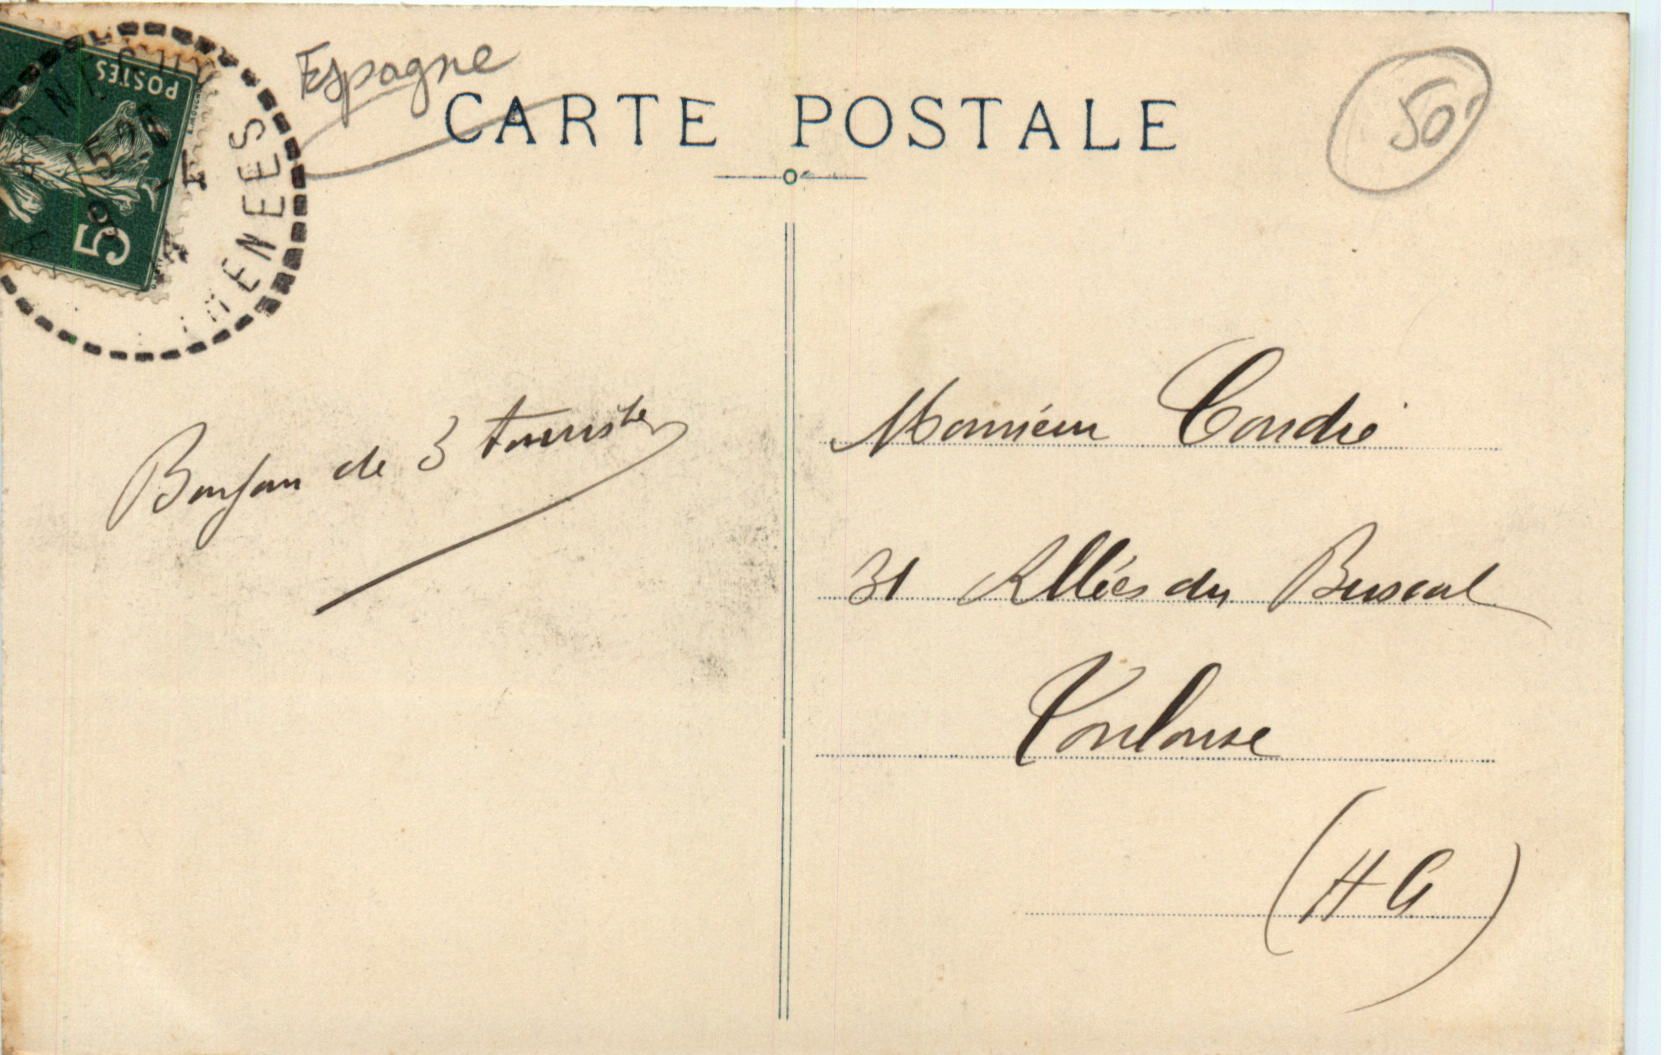 Espagne
50
CARTE POSTALE
POSTES
5c
15
ENEES
Bonjour de 3 touristes
Monsieur Condié
31 Allées du Busca
Toulouse
(H G)